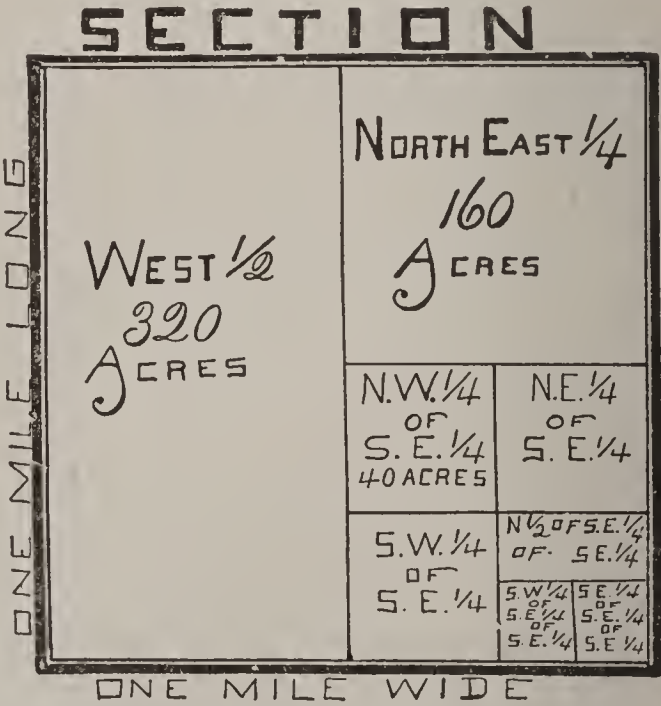 SECTION
ONE MILE LONG
WEST 1/2
320
ACRES
NORTH EAST 1/4
160
ACRES
N.W. 1/4
OF
S. E. 1/4
40 ACRES
N.E. 1/4
OF
S. E. 1/4
S.W. 1/4
OF
S. E. 1/4
N 1/2 OF S.E. 1/4
OF. S E. 1/4
S.W 1/4
OF
S.E 1/4
OF
S.E. 1/4
S E. 1/4
OF
S.E. 1/4
OF
S.E 1/4
ONE MILE WIDE